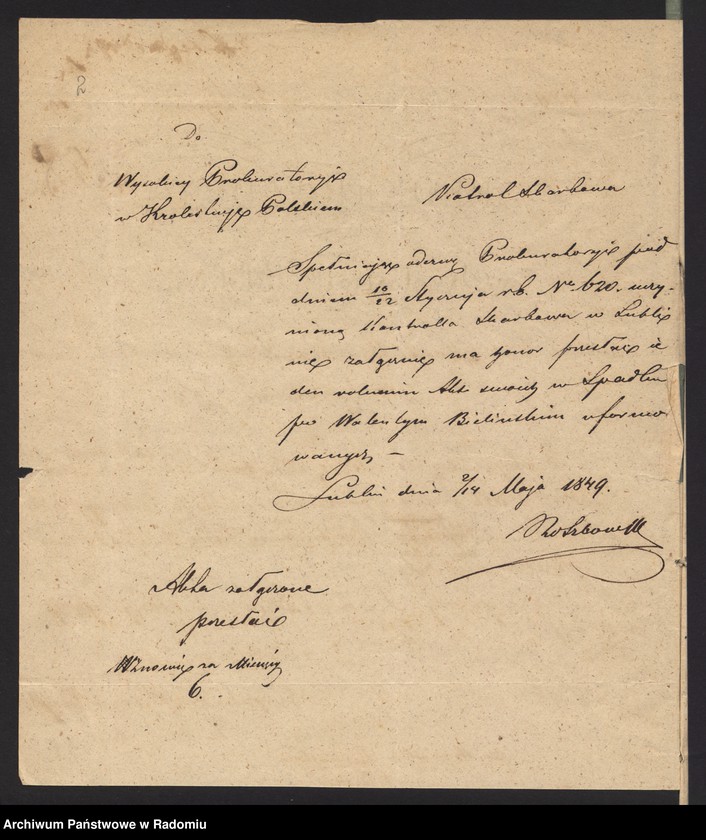 2
Do
Wysokiey Prokuratoryi
w Królestwie Polskiem
Skarbowa
Spełniając odezwę Prokuratoryi pod
dniem 10/22 Stycznia r.b. No 620. uczy-
nioną Kontrolla Skarbowa w Lubli
nie załącznie ma honor przesłać je
den volumin Akt swoich w Spadku
po Walentym Bielińskim uformo
wanych –
Lublin dnia 2/14 Maja 1849.
Akta załączone
przesłać
Wznowić za Miesięcy
6.
Archiwum Państwowe w Radomiu